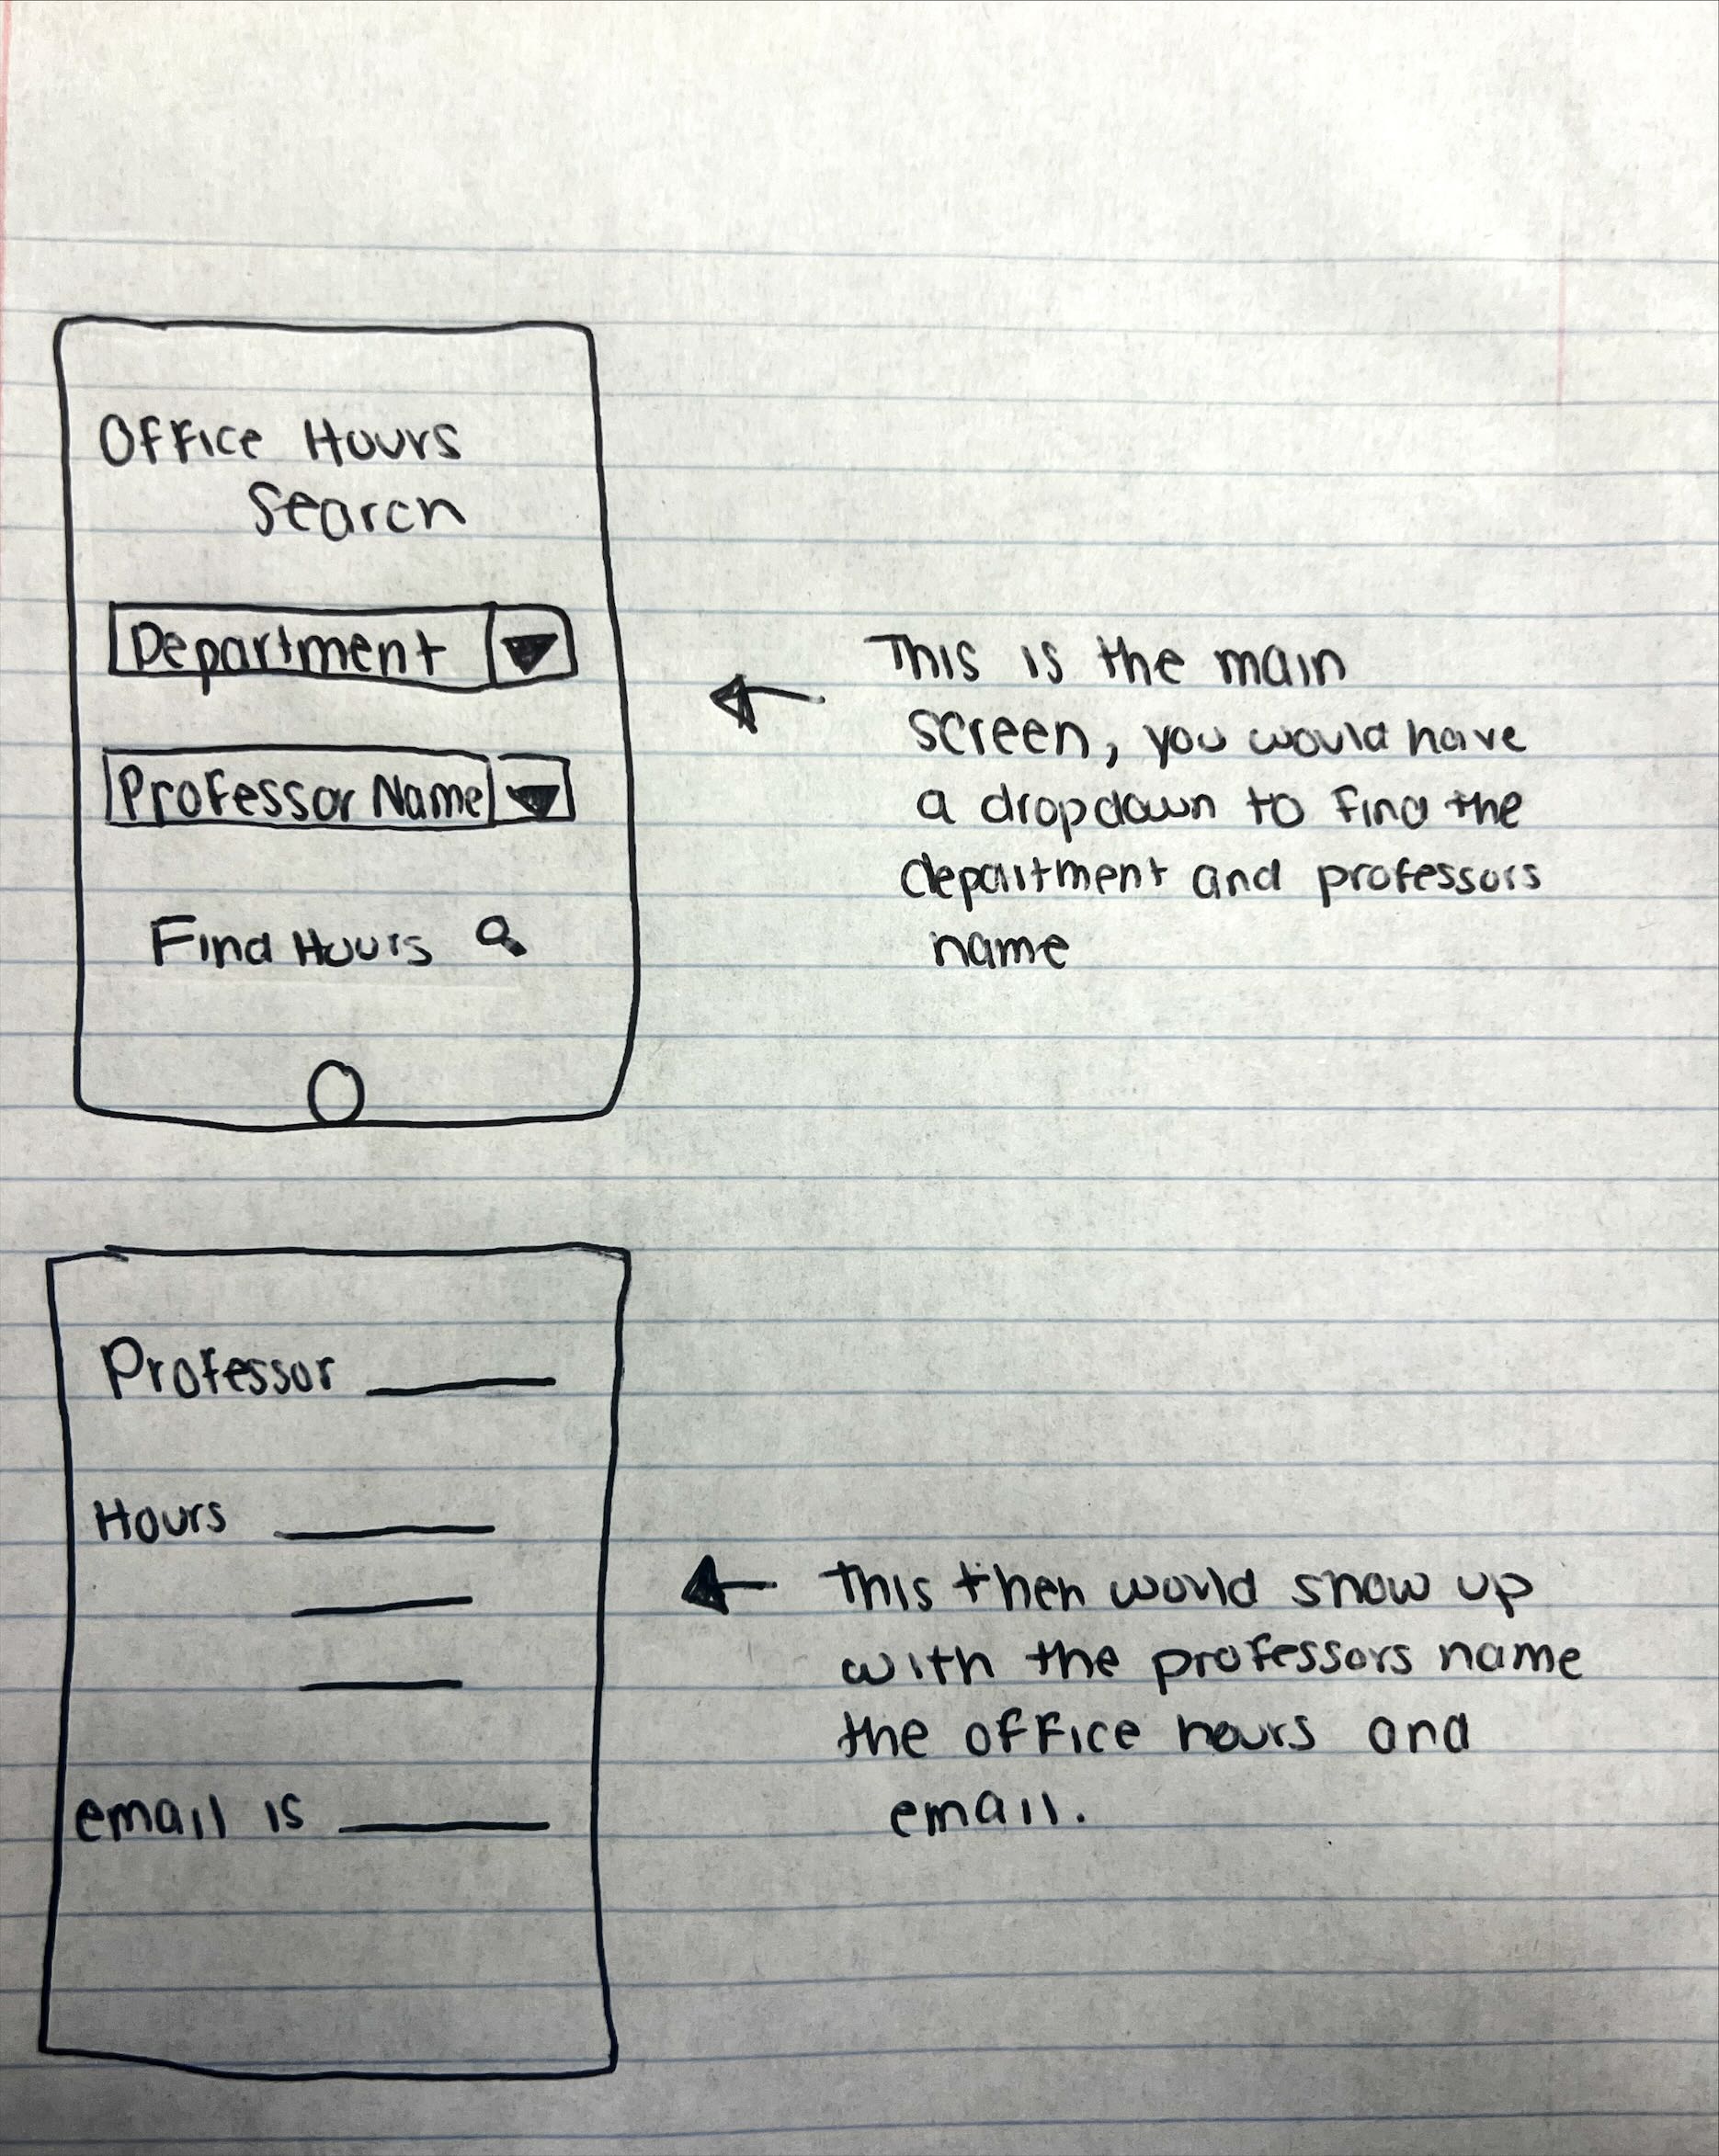 Office Hours
Search
Department
Professor Name
Find Hours
This is the main
screen, you would have
a dropdown to find the
department and professors
name
Professor
Hours
email is
This then would show up
with the professors name
the office hours and
email.